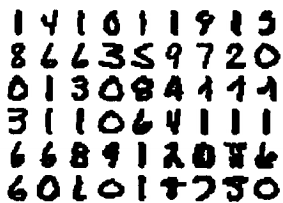 1 4 1 0 1 1 9 1 5
8 6 6 3 5 9 7 2 0
0 1 3 0 8 4 1 1 1
3 1 1 0 6 4 1 1 1
6 6 8 9 1 2 0 6
6 0 1 0 1 7 0